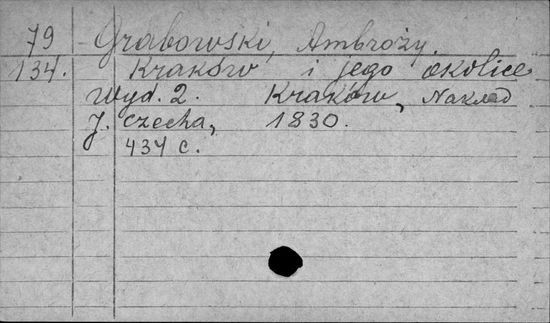 79 Grabowski, Ambroży.
134. Kraków i jego okolice
Wyd. 2. Kraków, Nakład
J. Czecha, 1830.
434 c.